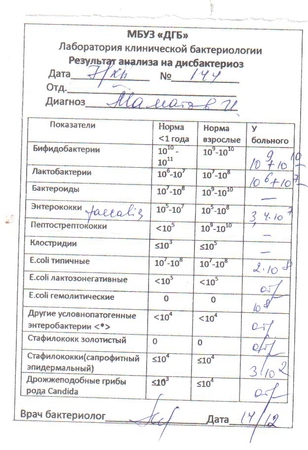 МБУЗ «ДГБ»
Лаборатория клинической бактериологии
Результат анализа на дисбактериоз
Дата № 144
Отд.
Диагноз
Показатели Норма <1 года Норма взрослые У больного
Бифидобактерии 10¹⁰-10¹¹ 10⁹-10¹⁰ 10⁹-10¹⁰
Лактобактерии 10⁶-10⁷ 10⁷-10⁸ 10⁶-10⁷
Бактероиды 10⁷-10⁸ 10⁹-10¹⁰ —
Энтерококки faecalis 10⁵-10⁷ 10⁵-10⁸ 3,4·10⁷
Пептострептококки <10⁵ 10⁹-10¹⁰ —
Клостридии ≤10³ ≤10⁵ —
E.coli типичные 10⁷-10⁸ 10⁷-10⁸ 2·10⁸
E.coli лактозонегативные <10⁵ <10⁵ отр
E.coli гемолитические 0 0 10⁸
Другие условнопатогенные энтеробактерии <*> <10⁴ <10⁴ отр
Стафилококк золотистый 0 0 отр
Стафилококки(сапрофитный эпидермальный) ≤10⁴ ≤10⁴ 3·10²
Дрожжеподобные грибы рода Candida ≤10³ ≤10⁴ отр
Врач бактериолог Дата 14/12